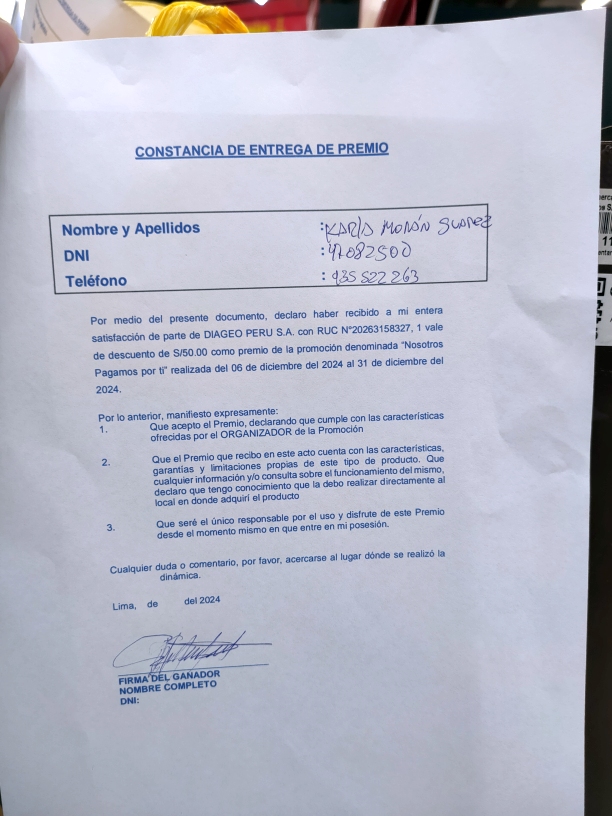 CONSTANCIA DE ENTREGA DE PREMIO
Nombre y Apellidos : KARLA MORÁN SUAREZ
DNI : 47082500
Teléfono : 935 522 263
Por medio del presente documento, declaro haber recibido a mi entera
satisfacción de parte de DIAGEO PERU S.A. con RUC N°20263158327, 1 vale
de descuento de S/50.00 como premio de la promoción denominada "Nosotros
Pagamos por ti" realizada del 06 de diciembre del 2024 al 31 de diciembre del
2024.
Por lo anterior, manifiesto expresamente:
1. Que acepto el Premio, declarando que cumple con las características
ofrecidas por el ORGANIZADOR de la Promoción
2. Que el Premio que recibo en este acto cuenta con las características,
garantías y limitaciones propias de este tipo de producto. Que
cualquier información y/o consulta sobre el funcionamiento del mismo,
declaro que tengo conocimiento que la debo realizar directamente al
local en donde adquirí el producto
3. Que seré el único responsable por el uso y disfrute de este Premio
desde el momento mismo en que entre en mi posesión.
Cualquier duda o comentario, por favor, acercarse al lugar dónde se realizó la
dinámica.
Lima, de del 2024
FIRMA DEL GANADOR
NOMBRE COMPLETO
DNI:
11